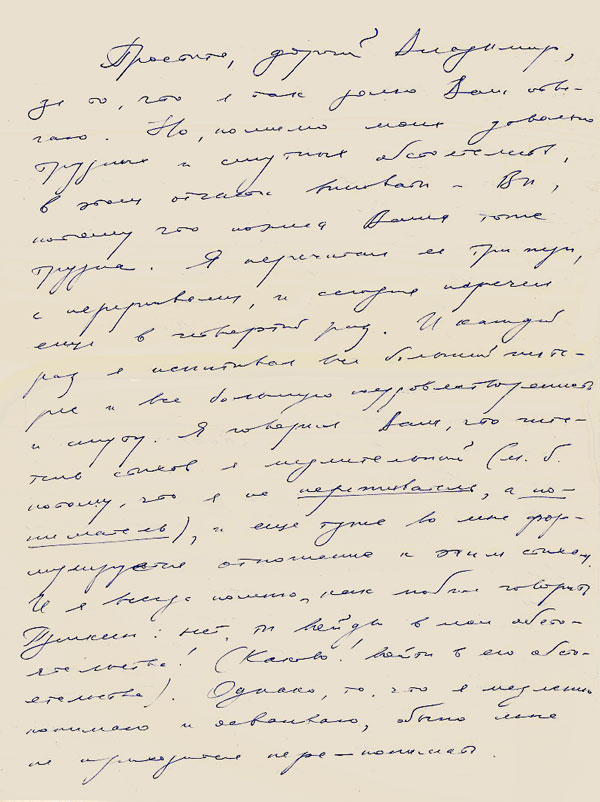 Простите, дорогой Владимир,
за то, что я так долго Вам отве-
чаю. Но, помимо моих довольно
трудных и смутных обстоятельств,
в этом отчасти виноваты – Вы,
потому что поэма Ваша тоже
трудна. Я перечитал ее три раза,
с перерывами, и сегодня перечел
еще в четвертый раз. И каждый
раз я испытывал все больший инте-
рес и все большую неудовлетворенность
и смуту. Я говорил Вам, что чита-
тель стихов я медлительный (м. б.
потому, что я не переживатель, а по-
ниматель), и еще туже во мне фор-
мулируется отношение к этим стихам.
И я всегда помню, как любил говорить
Пушкин: нет, ты войди в мои обсто-
ятельства! (Каково! войти в его обсто-
ятельства). Однако, то, что я медленно
понимаю и осваиваю, обычно мне
не приходится пере-понимать.